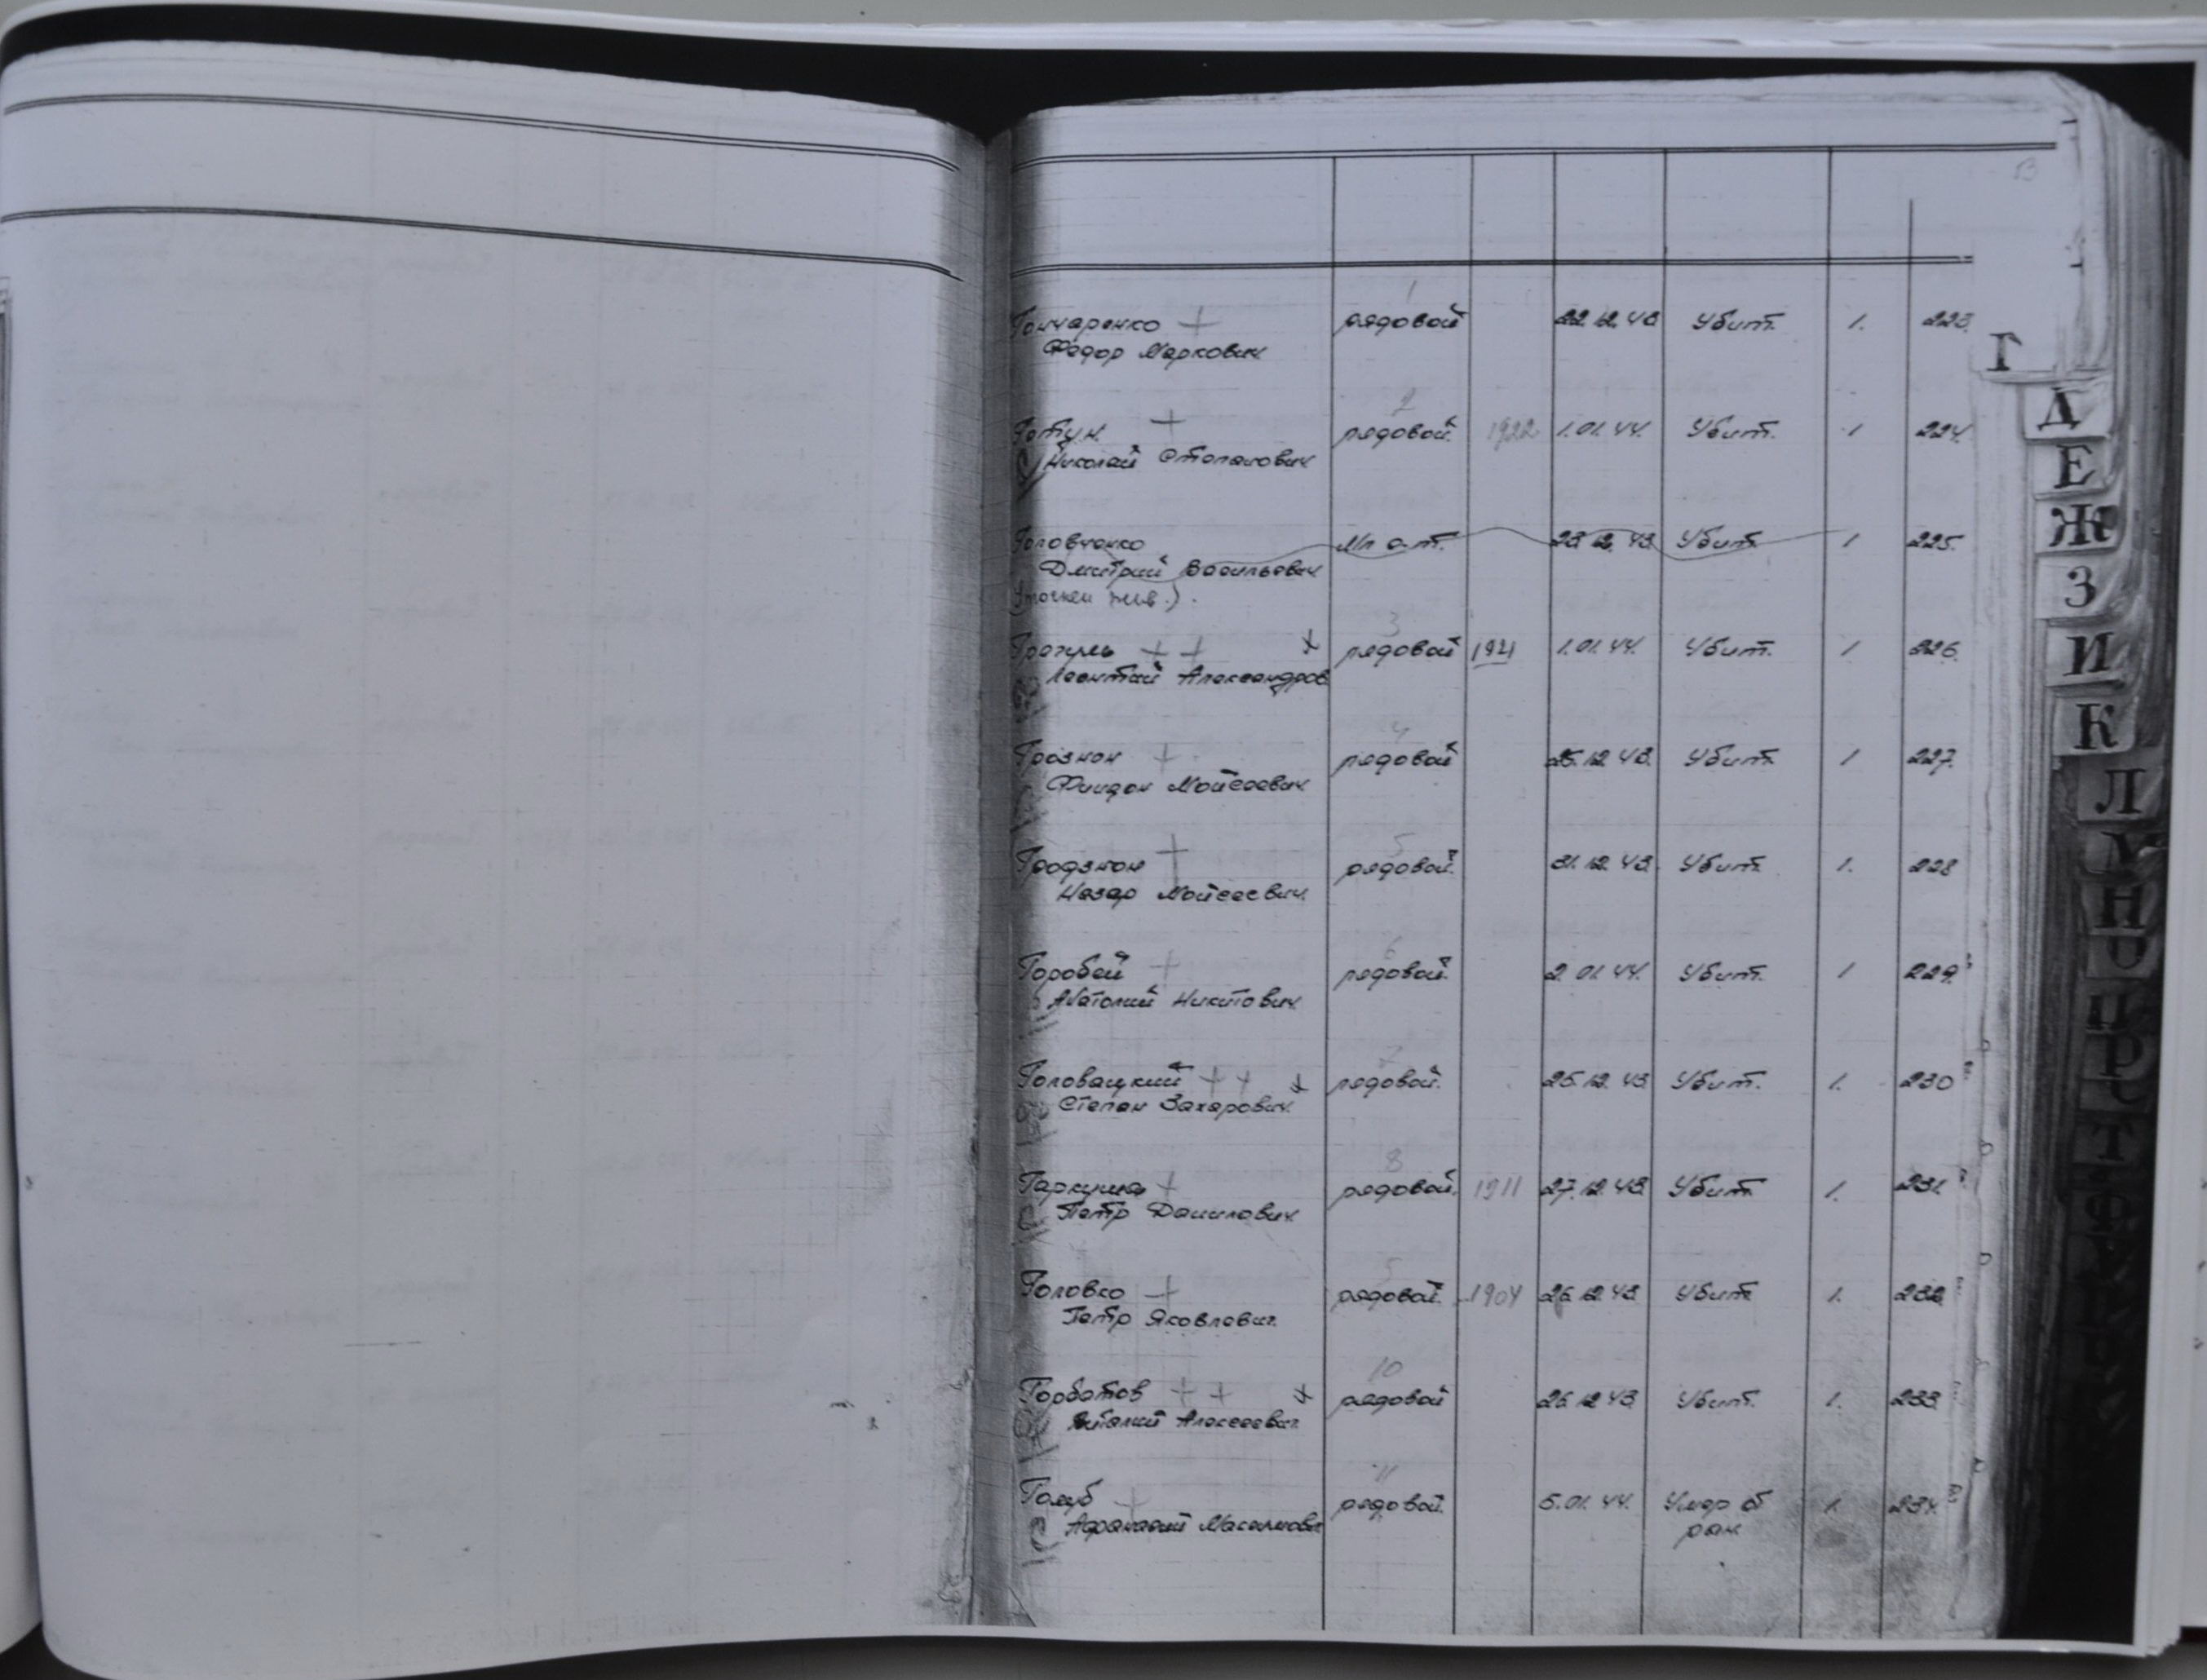 53
Гончаренко + рядовой 22.12.43 Убит. 1. 223.
Федор Маркович
Г
1
2
+ рядовой. 1922 1.01.44. Убит. 1 224.
Николай Степанович
Головченко Мл с-т. 23.12.43 Убит 1 225.
Дмитрий Васильевич
3
++ х рядовой 1921 1.01.44. Убит. 1 226.
Леонтий Александров
4
Грознон + рядовой 25.12.43. Убит 1 227.
Моисеевич
5
Гродзнон + рядовой. 31.12.43. Убит 1. 228
Назар Моисеевич.
6
Горобей + рядовой. 2.01.44. Убит. 1 229.
Анатолий Никитович
7
Головацкий ++ х рядовой. 25.12.43 Убит. 1. 230
Степан Захарович
8
Гаркуша + рядовой. 1911 27.12.43 Убит 1. 231.
Петр Данилович
Головко + рядовой. 1904 26.12.43. Убит 1. 232
Петр Яковлевич.
10
Горбатов ++ х рядовой 26.12.43 Убит. 1. 233.
Виталий Алексеевич
11
Голуб + рядовой. 5.01.44. Умер от 1. 234.
Афанасий ран
Д
Е
Ж
З
И
К
Л
М
Н
О
П
Р
Т